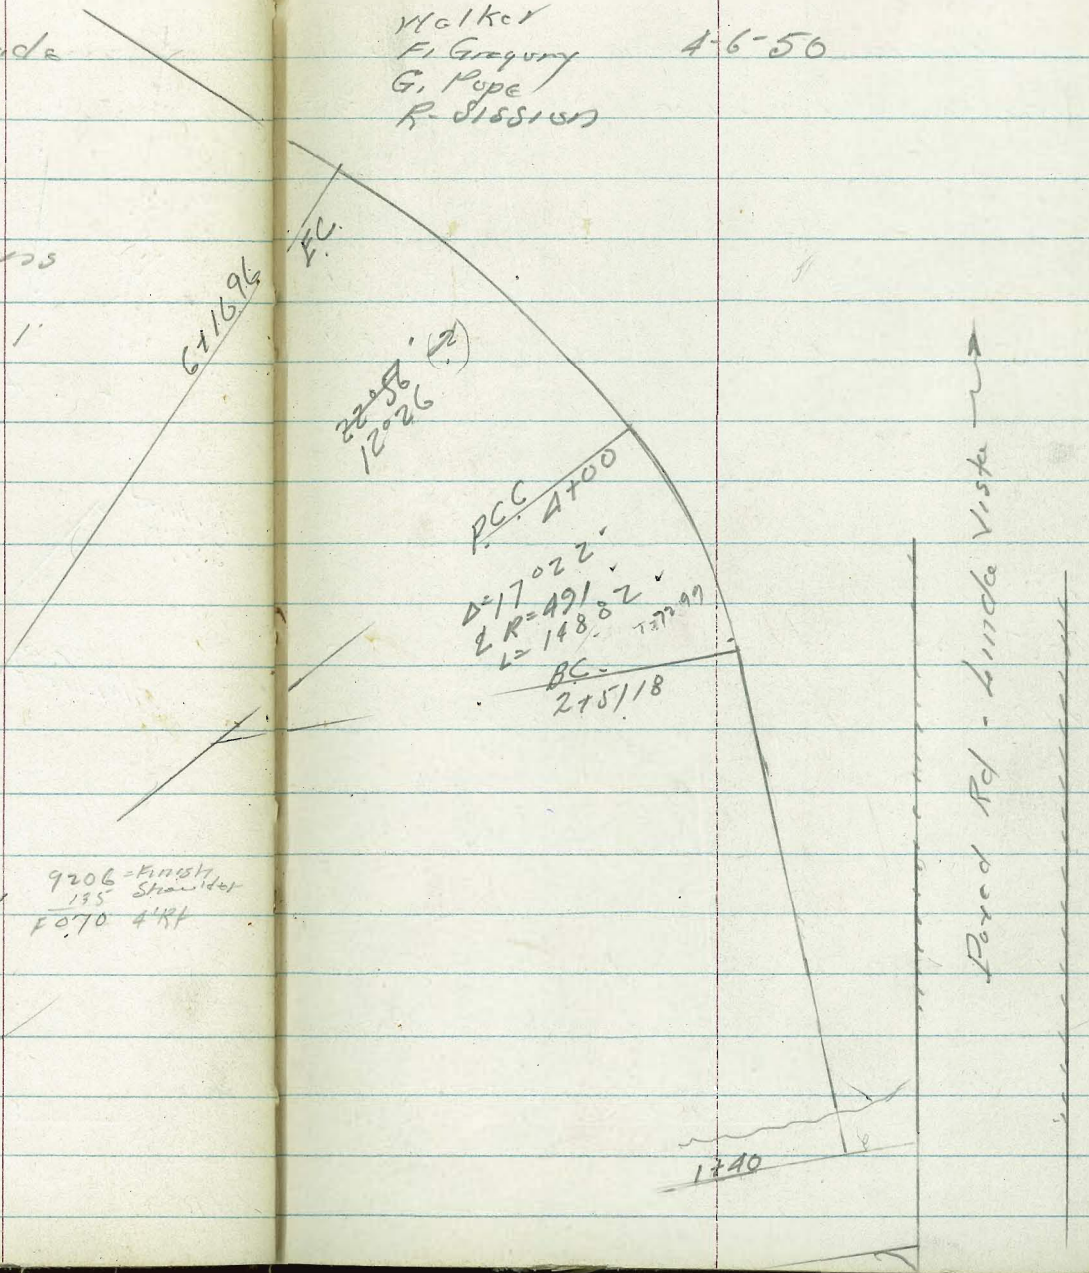 Walker
F. Gregory
G. Pope
R. Sission
4-6-50
E.C.
6+16.96
22°56' (2)
12°26
P.C.C
4+00
Δ=17°02 2'
R=491.
L=148.82
T=72.99
BC-
2+51.18
9206 = Finish
135 Shoulder
F 070 4' Rt
1+40
Paved Rd - Linda Vista